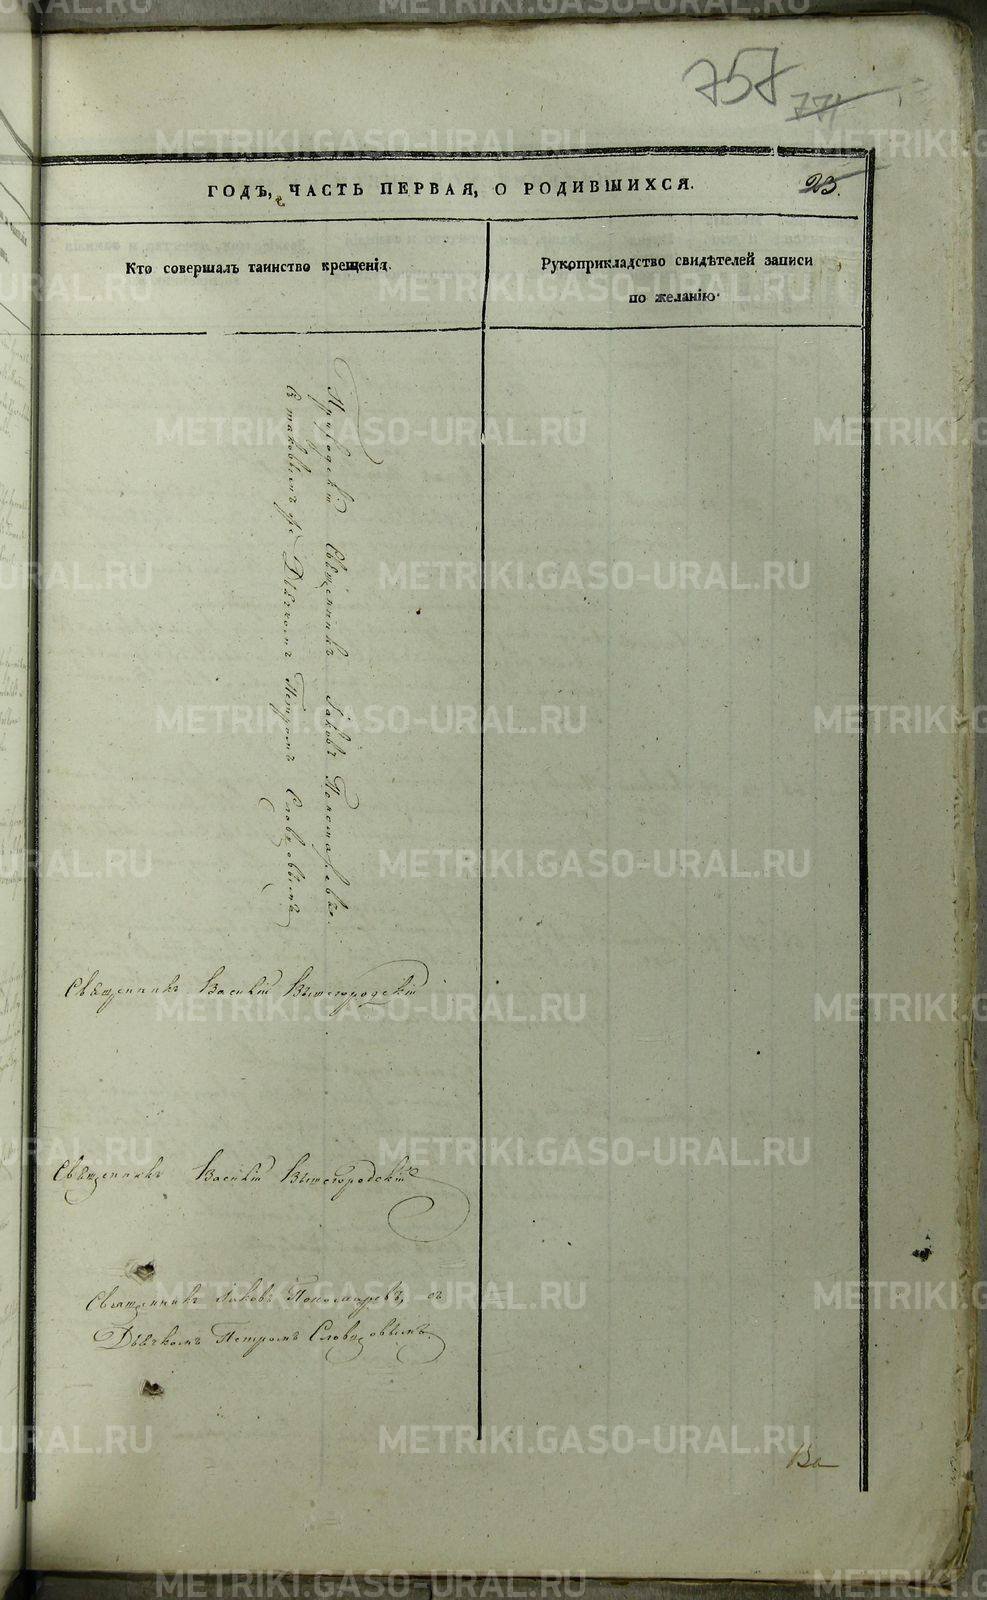 757
771
ГОДЪ, ЧАСТЬ ПЕРВАЯ, О РОДИВШИХСЯ.
23.
Кто совершалъ таинство крещенія.
Рукоприкладство свидѣтелей записи
по желанію.
Приходскій Священникъ Іаковъ Пономаревъ
съ таковымъ же Дьячкомъ Петромъ Словцовымъ
Священникъ Василій Вышегородскій
Священникъ Василій Вышегородскій
Священникъ Іаковъ Пономаревъ, съ
Дьячкомъ Петромъ Словцовымъ
METRIKI.GASO-URAL.RU